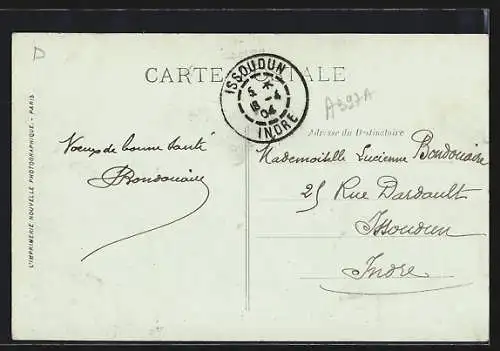 D
CARTE POSTALE
ISSOUDUN
5 *
18 - 4
04
INDRE
A597A
Adresse du Destinataire
Vœux de bonne santé
Bondouaire
Mademoiselle Lucienne Bondouaire
25 Rue Dardault
Issoudun
Indre
L'IMPRIMERIE NOUVELLE PHOTOGRAPHIQUE. - PARIS